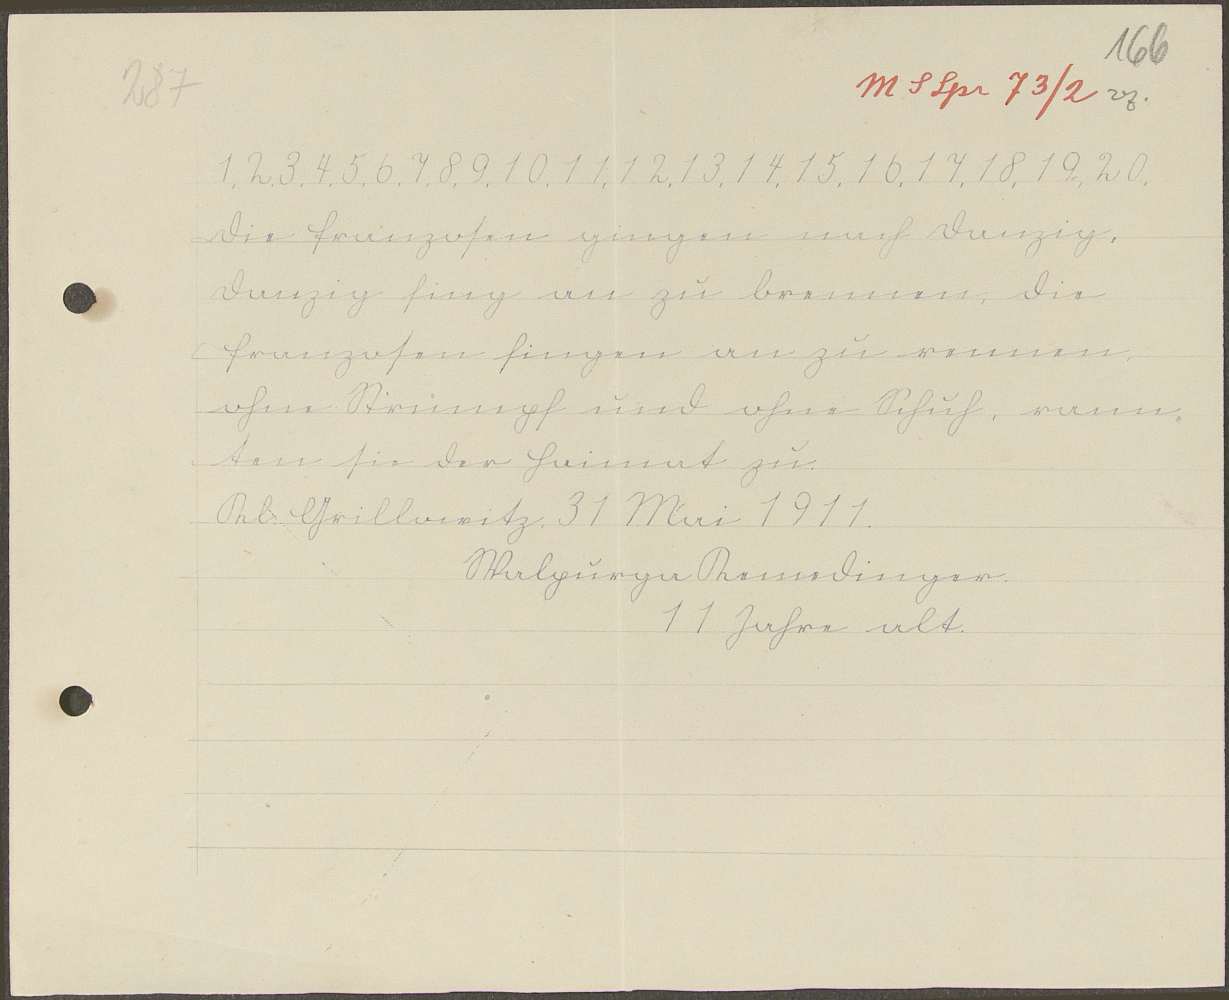 166
287
M S Spr 73/2 rz.
1, 2, 3, 4, 5, 6, 7, 8, 9, 10, 11, 12, 13, 14, 15, 16, 17, 18, 19, 20.
Die Franzosen gingen nach Danzig,
Danzig fing an zu brennen, die
Franzosen fingen an zu rennen,
ohne Strümpf und ohne Schuh, rann-
ten sie der Heimat zu.
Kl. Grillowitz, 31 Mai 1911.
Walpurga
11 Jahre alt.